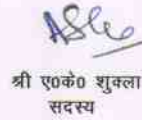 श्री ए०के० शुक्ला
सदस्य